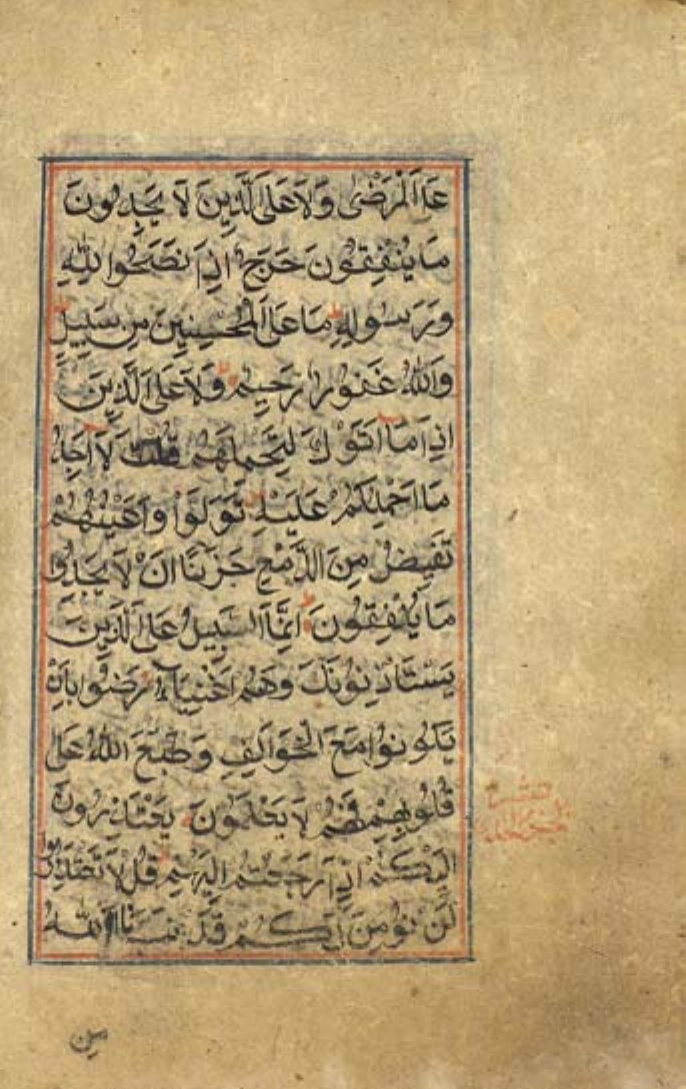 عَلَى الْمَرْضَىٰ وَلَا عَلَى الَّذِينَ لَا يَجِدُونَ
مَا يُنْفِقُونَ حَرَجٌ اِذَا نَصَحُوا لِلّٰهِ
وَرَسُولِهِ مَا عَلَى الْمُحْسِنِينَ مِنْ سَبِيلٍ
وَاللّٰهُ غَفُورٌ رَحِيمٌ وَلَا عَلَى الَّذِينَ
اِذَا مَا اَتَوْكَ لِتَحْمِلَهُمْ قُلْتَ لَا اَجِدُ
مَا اَحْمِلُكُمْ عَلَيْهِ تَوَلَّوْا وَاَعْيُنُهُمْ
تَفِيضُ مِنَ الدَّمْعِ حَزَنًا اَنْ لَا يَجِدُوا
مَا يُنْفِقُونَ اِنَّمَا السَّبِيلُ عَلَى الَّذِينَ
يَسْتَاْذِنُونَكَ وَهُمْ اَغْنِيَاءُ رَضُوا بِاَنْ
يَكُونُوا مَعَ الْخَوَالِفِ وَطَبَعَ اللّٰهُ عَلَى
قُلُوبِهِمْ فَهُمْ لَا يَعْلَمُونَ يَعْتَذِرُونَ
اِلَيْكُمْ اِذَا رَجَعْتُمْ اِلَيْهِمْ قُلْ لَا تَعْتَذِرُوا
لَنْ نُؤْمِنَ لَكُمْ قَدْ نَبَّاَنَا اللّٰهُ
مِنْ